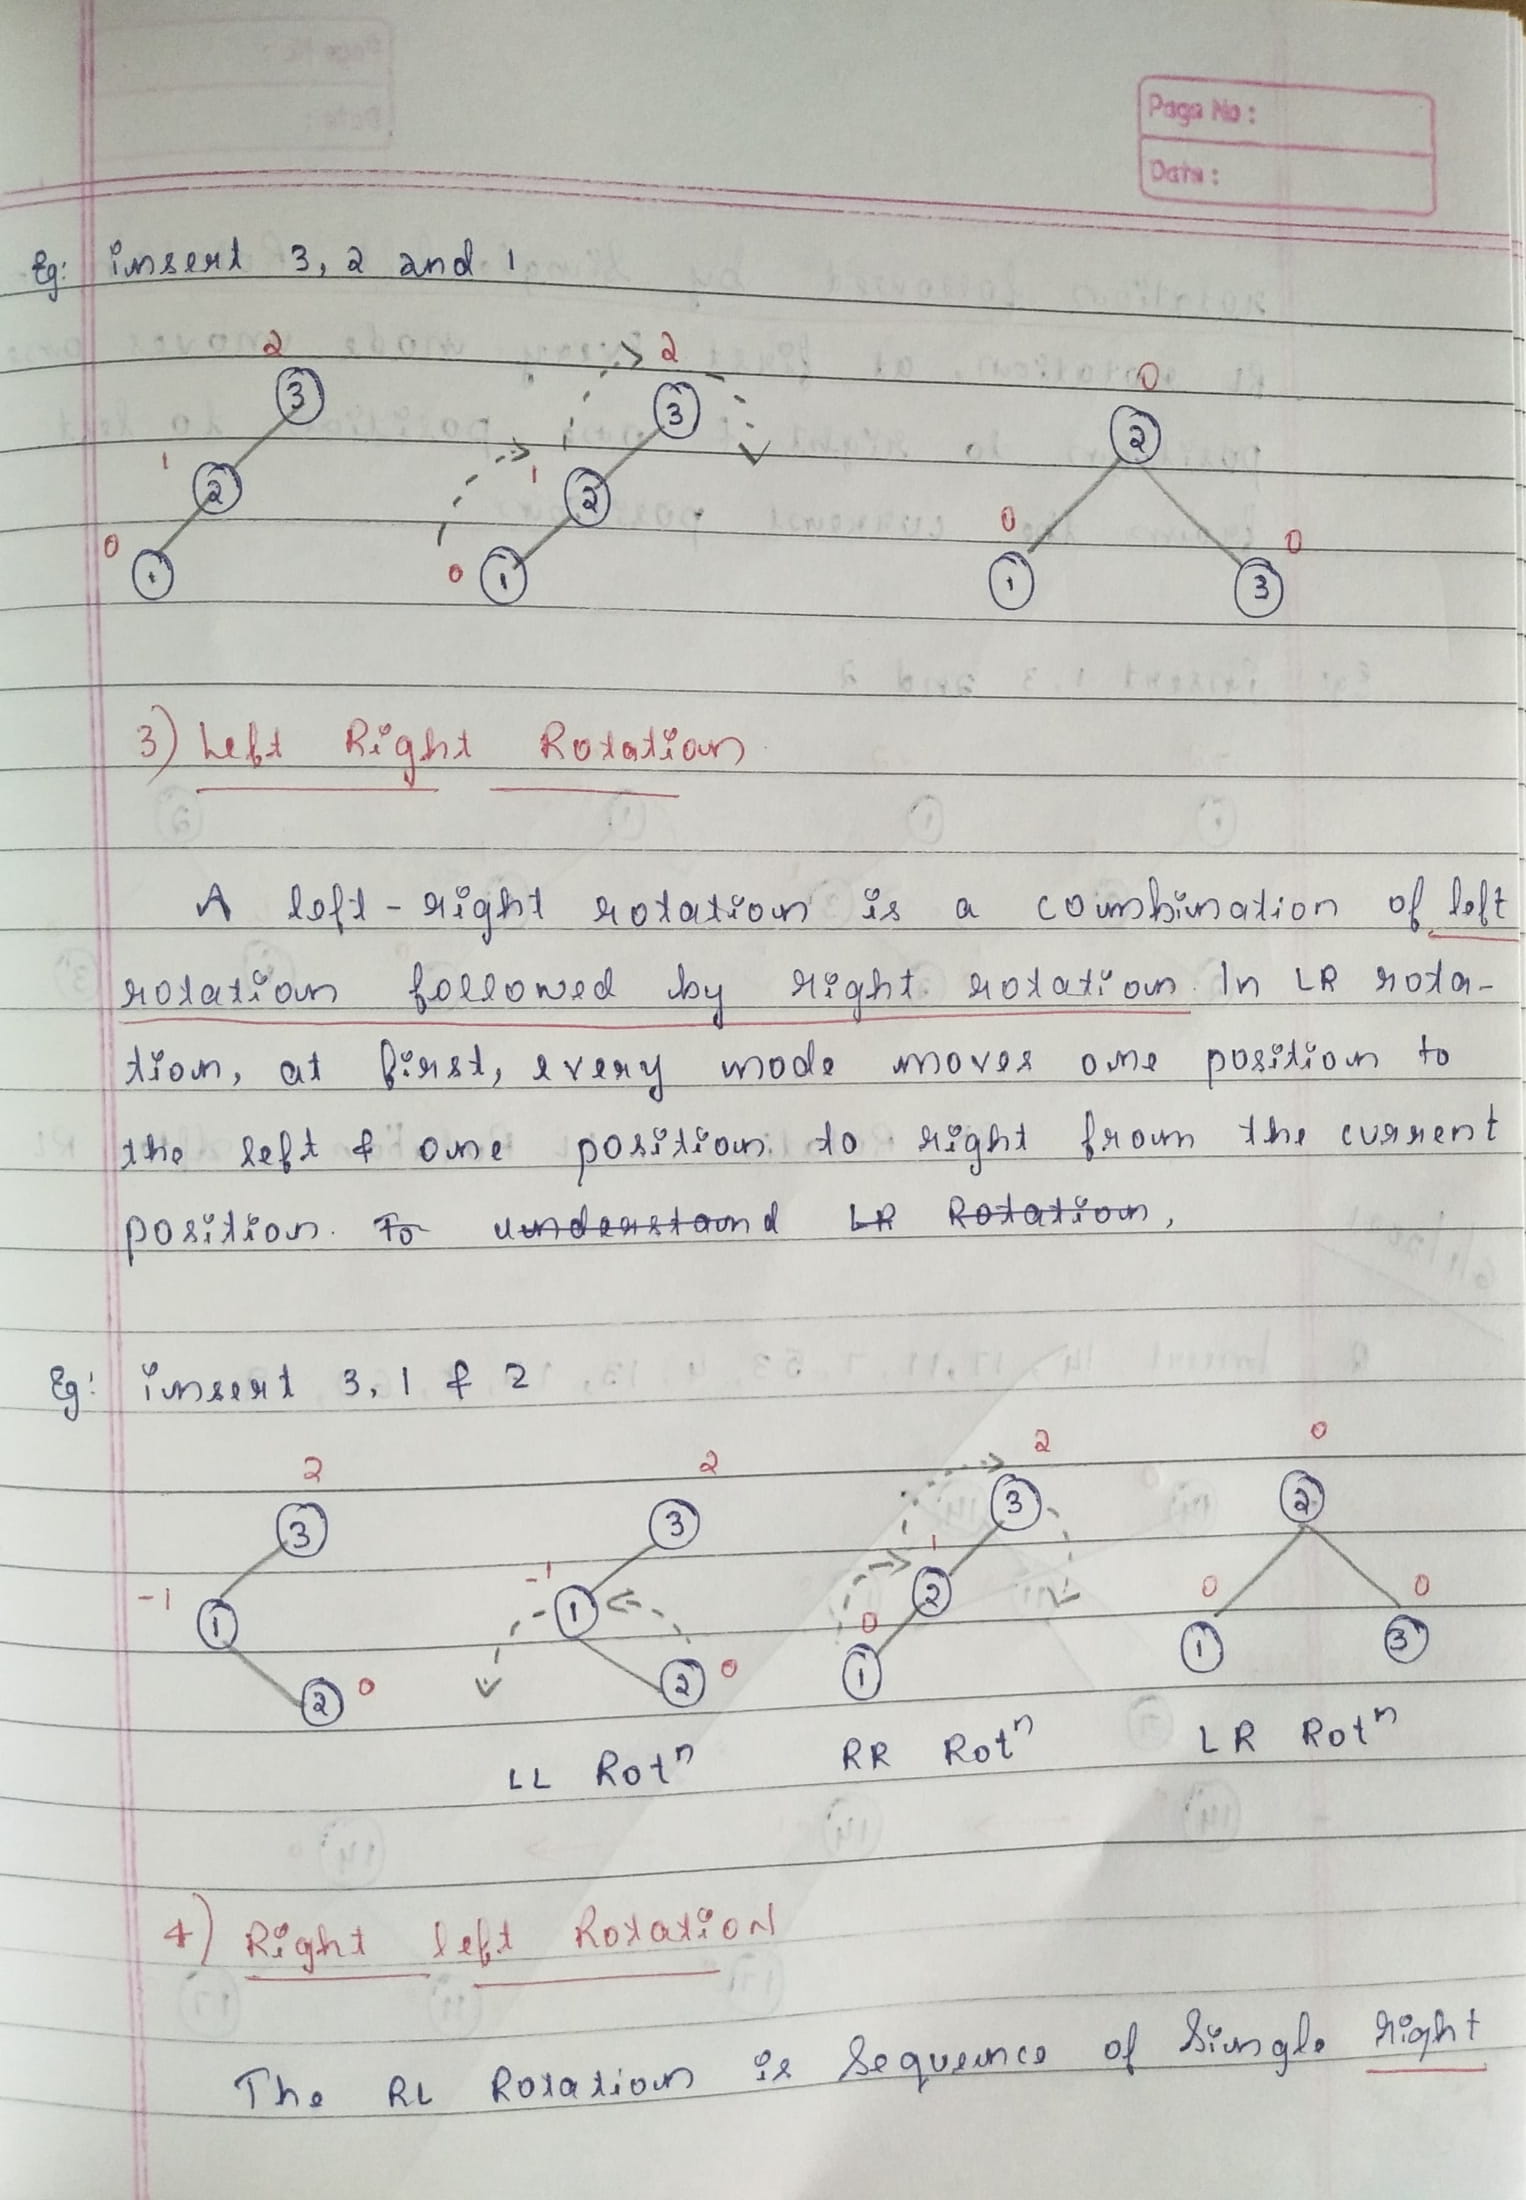 Page No :
Date :
Eg: insert 3, 2 and 1
2 2 0
3 3 2
1 1
2 2
0 0 0 0
1 1 1 3
3) Left Right Rotation
A left-right rotation is a combination of left
rotation followed by right rotation. In LR rota-
tion, at first, every node moves one position to
the left & one position to right from the current
position. To understand LR Rotation,
Eg: insert 3, 1 & 2
2 2 2 0
3 3 3 2
-1 -1 1 0 0
1 1 2 1 3
0 0 0
2 2 1
LL Rotⁿ RR Rotⁿ LR Rotⁿ
4) Right left Rotation
The RL Rotation is Sequence of Single right